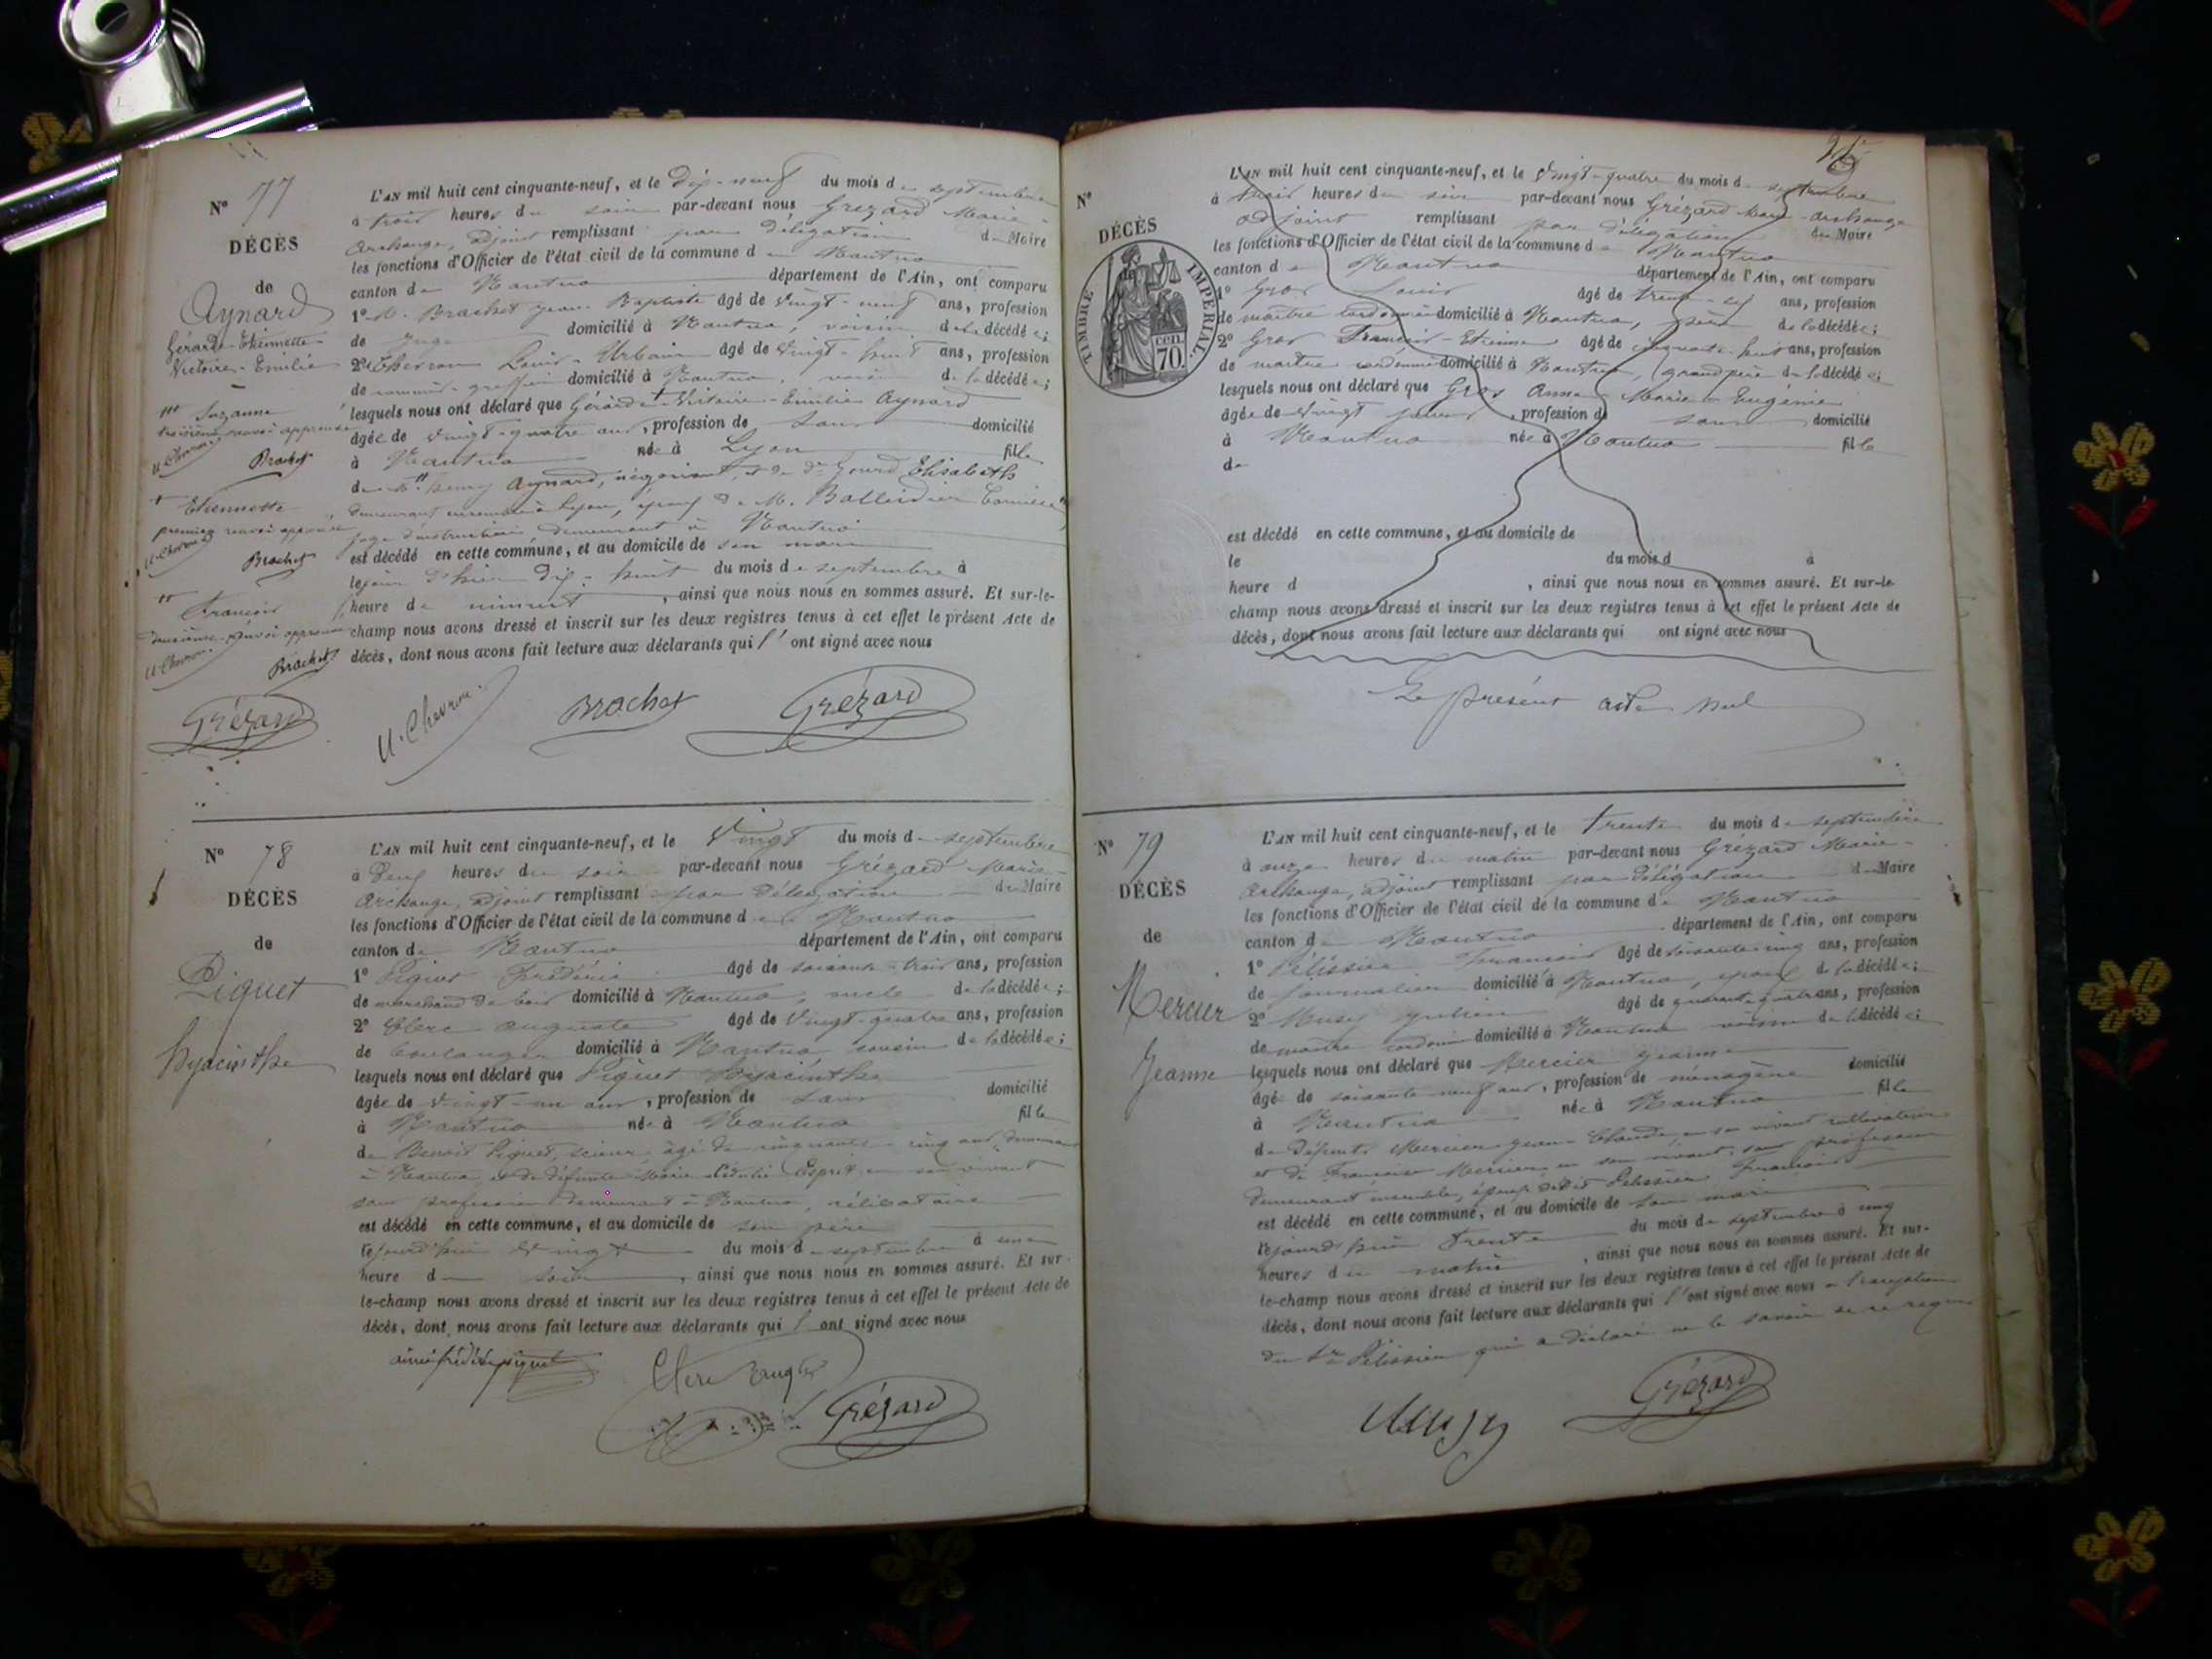 N° 77
DÉCÈS
de
Aynard
Gérarde-Etiennette
Victoire-Emilie
L'AN mil huit cent cinquante-neuf, et le dix-neuf du mois de septembre
à trois heures du soir par-devant nous Grézard Marie-
Archange, adjoint remplissant par délégation du Maire
les fonctions d'Officier de l'état civil de la commune de Nantua
canton de Nantua département de l'Ain, ont comparu
1° M. Brachet Jean Baptiste âgé de vingt-neuf ans, profession
de Juge domicilié à Nantua, voisin de la décédée;
2° Chevron Louis-Urbain âgé de vingt-huit ans, profession
de commis-greffier domicilié à Nantua, voisin de la décédée;
lesquels nous ont déclaré que Gérarde + Victoire-Emilie Aynard
âgée de vingt-quatre ans, profession de sans domicilié
à Nantua née à Lyon fille
de M. Henry Aynard, négociant, et de de Gourd Elisabeth
demeurant ensemble à Lyon, épouse de M. Balleidier Camille
juge d'instruction demeurant à Nantua
est décédé en cette commune, et au domicile de son mari
le jour d'hier dix-huit du mois de septembre à
heure de minuit, ainsi que nous nous en sommes assuré. Et sur-le-
champ nous avons dressé et inscrit sur les deux registres tenus à cet effet le présent Acte de
décès, dont nous avons fait lecture aux déclarants qui l'ont signé avec nous
Suzanne
troisième renvoi approuvé
U. Chevron
Brachet
+ Etiennette
premier renvoi approuvé
U. Chevron
Brachet
François
deuxième renvoi approuvé
U. Chevron
Brachet
Grézard U. Chevron Brachet Grézard
N° 78
DÉCÈS
de
Piquet
Hyacinthe
L'AN mil huit cent cinquante-neuf, et le Vingt du mois de septembre
à deux heures du soir par-devant nous Grézard Marie-
Archange, adjoint remplissant par délégation du Maire
les fonctions d'Officier de l'état civil de la commune de Nantua
canton de Nantua département de l'Ain, ont comparu
1° Piquet Frédéric âgé de soixante-trois ans, profession
de marchand de bois domicilié à Nantua, oncle de la décédée;
2° Clerc Auguste âgé de vingt-quatre ans, profession
de boulanger domicilié à Nantua, cousin de la décédée;
lesquels nous ont déclaré que Piquet Hyacinthe
âgée de vingt-un ans, profession de sans domicilié
à Nantua née à Nantua fille
de Benoit Piquet, scieur, âgé de cinquante-cinq ans, demeurant
à Nantua, et de défunte Marie Esprit, en son vivant
sans profession demeurant à Nantua, célibataire
est décédé en cette commune, et au domicile de son père
le jourd'hui vingt du mois de septembre à une
heure du soir, ainsi que nous nous en sommes assuré. Et sur-
le-champ nous avons dressé et inscrit sur les deux registres tenus à cet effet le présent Acte de
décès, dont nous avons fait lecture aux déclarants qui l'ont signé avec nous
aimé frédéric piquet Clerc Grézard
N°
DÉCÈS
TIMBRE IMPÉRIAL
cen.
70.
L'AN mil huit cent cinquante-neuf, et le vingt-quatre du mois de septembre
à trois heures du soir par-devant nous Grézard Marie-Archange
adjoint remplissant par délégation du Maire
les fonctions d'Officier de l'état civil de la commune de Nantua
canton de Nantua département de l'Ain, ont comparu
1° Gros Louis âgé de trente-six ans, profession
de maître cordonnier domicilié à Nantua, père de la décédée;
2° Gros François-Etienne âgé de cinquante-huit ans, profession
de maître cordonnier domicilié à Nantua, grand père de la décédée;
lesquels nous ont déclaré que Gros Anna Marie-Eugénie
âgée de vingt jours, profession de sans domicilié
à Nantua née à Nantua fille
de
est décédé en cette commune, et au domicile de
le du mois d à
heure d , ainsi que nous nous en sommes assuré. Et sur-le-
champ nous avons dressé et inscrit sur les deux registres tenus à cet effet le présent Acte de
décès, dont nous avons fait lecture aux déclarants qui ont signé avec nous
Le présent acte nul
N° 79
DÉCÈS
de
Mercier
Jeanne
L'AN mil huit cent cinquante-neuf, et le trente du mois de septembre
à onze heures du matin par-devant nous Grézard Marie-
Archange, adjoint remplissant par délégation du Maire
les fonctions d'Officier de l'état civil de la commune de Nantua
canton de Nantua département de l'Ain, ont comparu
1° Pélissier François âgé de soixante-cinq ans, profession
de journalier domicilié à Nantua, époux de la décédée;
2° Musy Julien âgé de quarante-quatre ans, profession
de maître cordonnier domicilié à Nantua voisin de la décédée;
lesquels nous ont déclaré que Mercier Jeanne
âgée de soixante-neuf ans, profession de ménagère domicilié
à Nantua née à Nantua fille
de défunts Mercier Jean-Claude, en son vivant cultivateur
et de Françoise Mercier en son vivant, sans profession
demeurant ensemble, épouse dudit Pelissier François
est décédé en cette commune, et au domicile de son mari
le jourd'hui trente du mois de septembre à cinq
heures du matin, ainsi que nous nous en sommes assuré. Et sur-
le-champ nous avons dressé et inscrit sur les deux registres tenus à cet effet le présent Acte de
décès, dont nous avons fait lecture aux déclarants qui l'ont signé avec nous à l'exception
du Sr Pélissier qui a déclaré ne le savoir de ce requis
Musy Grézard